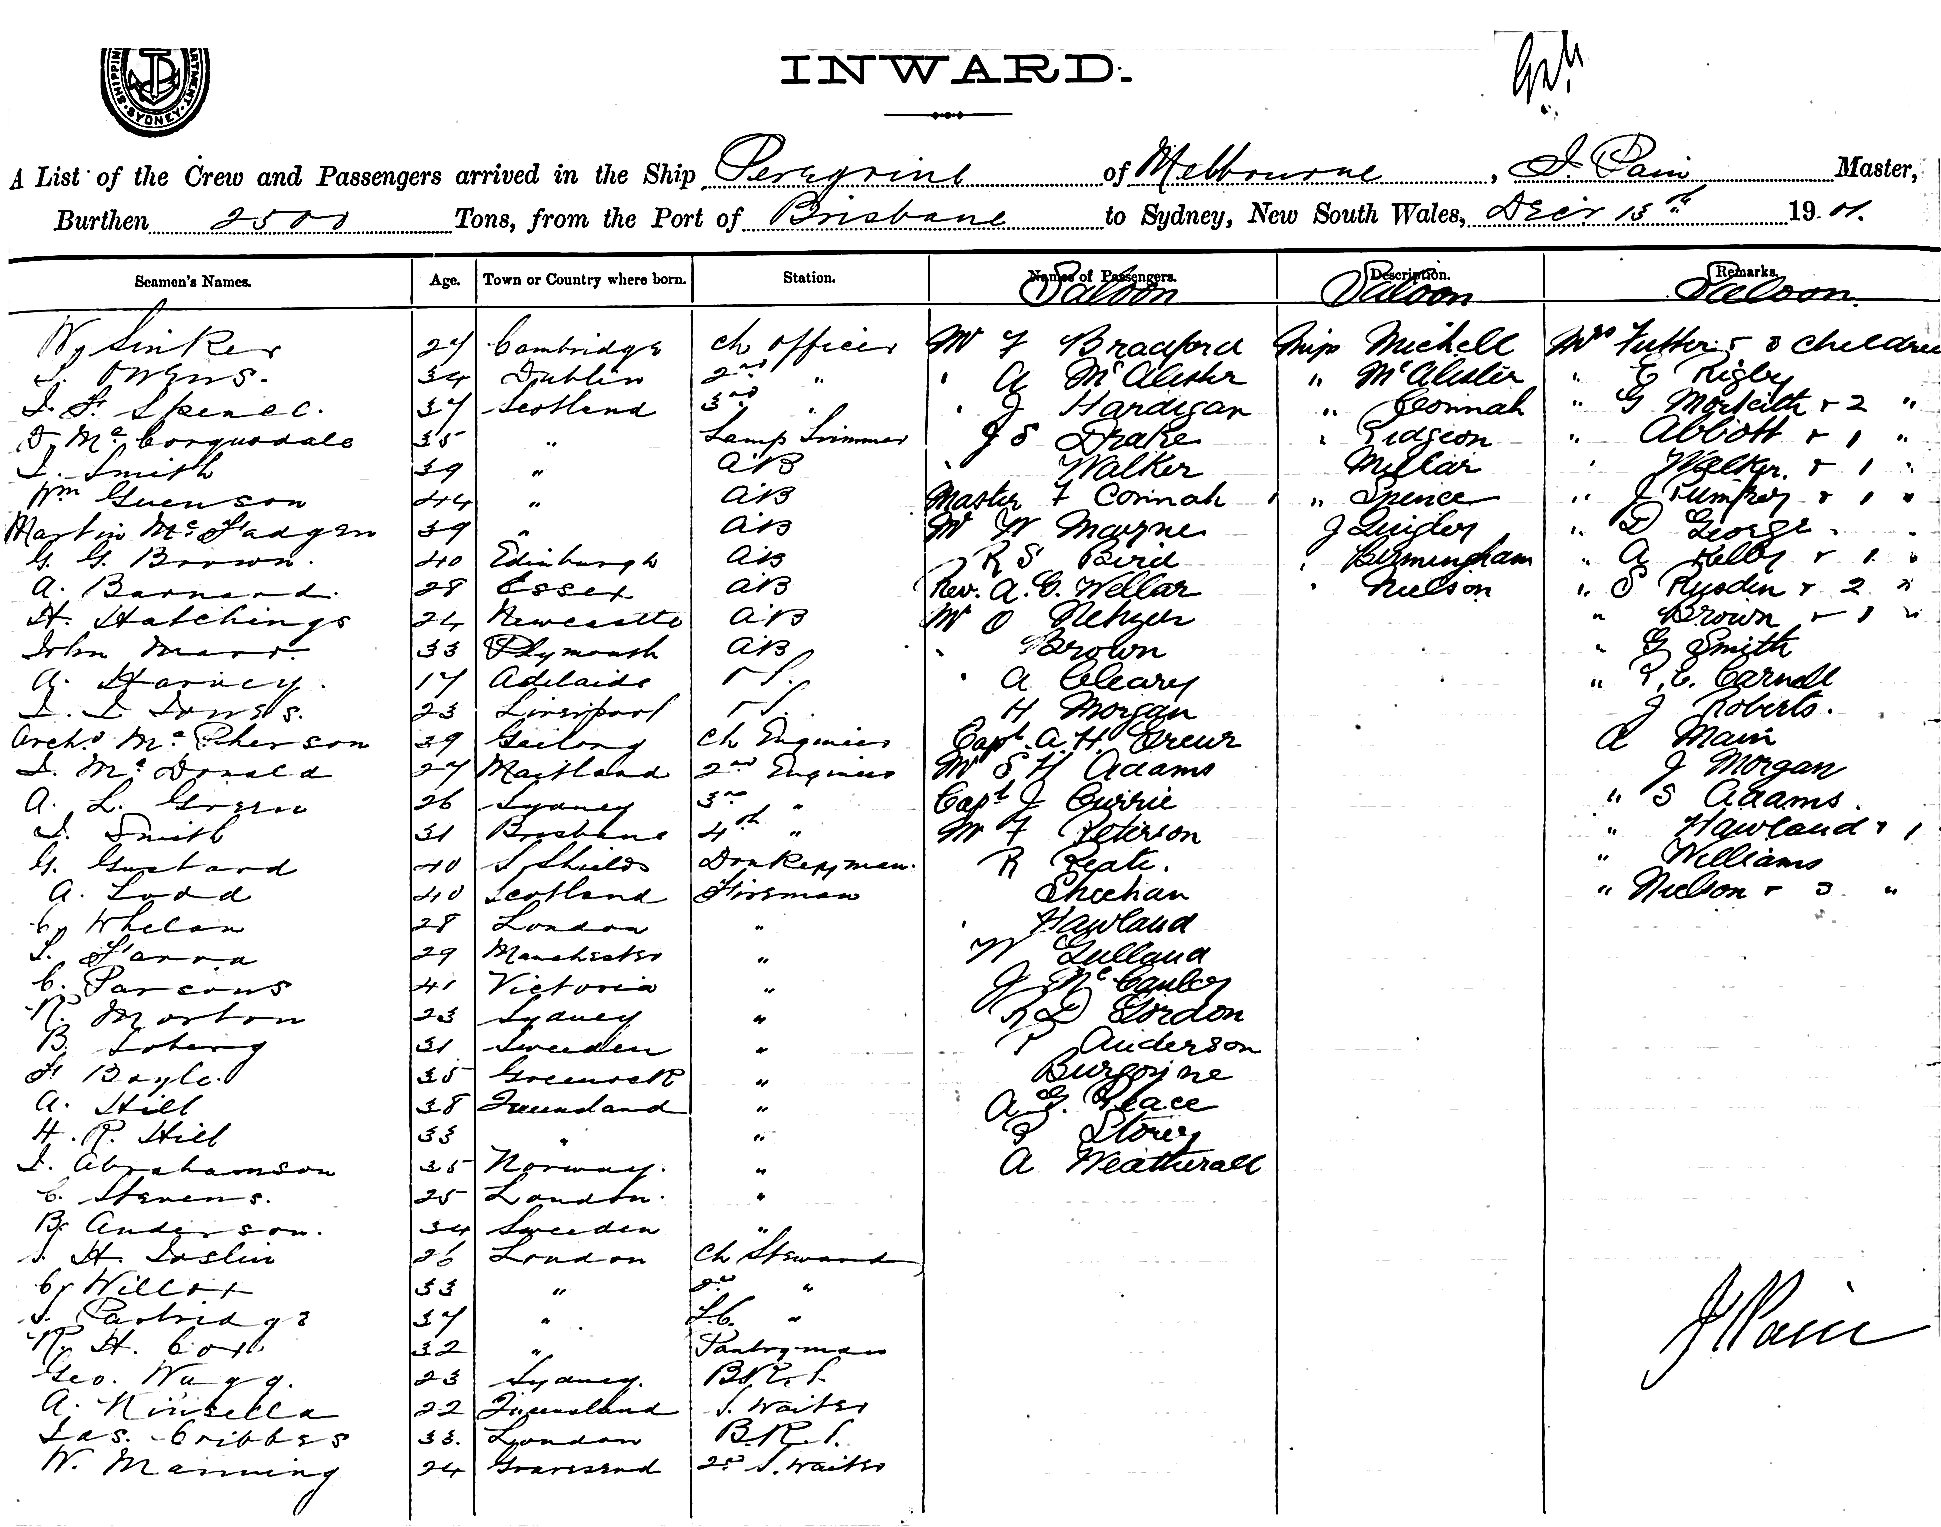 SHIPPING DEPARTMENT. SYDNEY
INWARD.
A List of the Crew and Passengers arrived in the Ship Peregrine of Melbourne, J. Pain Master,
Burthen 2500 Tons, from the Port of Brisbane to Sydney, New South Wales, Decr 13th 1901.
Seamen's Names. Age. Town or Country where born. Station. Names of Passengers. Description. Remarks.
Saloon Saloon Saloon
Wy Sinker 27 Cambridge Ch Officer Mr F Bradford Miss Michell Mrs Futter & 3 Children
Owens. 34 Dublin 2nd " " A McAlister " McAlister " E Rigby
J. F. Spence. 37 Scotland 3rd " " J Hardigan " Corinah " G Monteith & 2 "
D. McCorquodale 35 " Lamp Trimmer J S Drake " Pidgeon " Abbott & 1 "
J. Smith 39 " AB " Walker Millar " J Walker & 1 "
Wm Guenson 44 " AB Master F Corinah " Spence " J Pumfrey & 1 "
Martin McFadgen 39 " AB Mr W Mayne J Quigley " D George
G. G. Brown. 40 Edinburgh AB R S Bird " Birmingham " A Kelby & 1 "
A. Barnard. 28 Essex AB Rev. A. G. Wellar " Nielson " S Rusden & 2 "
H. Hatchings 24 Newcastle AB Mr O " Brown & 1 "
John Marr. 33 Plymouth AB " Brown " G Smith
A. Harvey. 17 Adelaide " A Cleary " R. C. Carnell
Jones. 23 Liverpool H Morgan J Roberts.
Archd McPherson 39 Geelong Ch Engineer Capt. A. H. A Main
J. McDonald 27 Maitland 2nd Engineer Mr S H Adams J Morgan
A. L. Green 26 Sydney 3rd " Capt J Currie " S Adams.
J. Smith 31 Brisbane 4th " Mr F Peterson " Hawland & 1
G. Gustard 40 S Shields Donkeyman. R Keate. " Williams
A. Todd 40 Scotland Fireman Sheehan " Nielson & 3 "
C. Whelan 28 London " " Hawland
29 Manchester " W Gulland
C. Parsons 41 Victoria " J McCauley
R. Morton 23 Sydney " R D Gordon
B. Soberg 31 Sweeden " Anderson
F. Boyle. 35 Greenock " Burgoyne
A. Hill 38 Queensland " A G. Peace
H. R. Hill 33 " " Storey
J. Abrahamson 35 Norway. " A Weatherall
C. Stevens. 25 London. "
B. Anderson. 34 Sweeden "
J. H. Joslin 26 London Ch Steward
C. Willox 33 " 2nd "
J. Partridge 37 " F.C. "
R. H. Cox. 32 " Pantryman
Geo. Wagg. 23 Sydney. B.R.S.
A. Kinsella 22 Queensland S. Waiter
Jas. Cribbes 33. London B.R.S.
W. Manning 24 Gravesend 2nd S. Waiter
J Pain